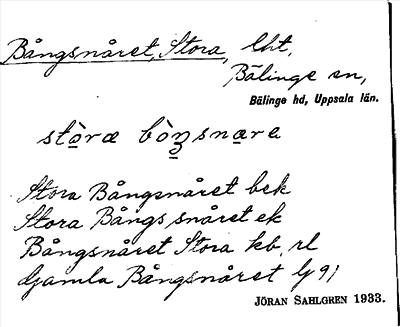 Bångsnåret, Stora, lht,
Bälinge sn,
Bälinge hd, Uppsala län.
stò̱ræ bò̱ŋsna̱re
Stora Bångsnåret bek
Stora Bångs snåret ek
Bångsnåret Stora kb, rl
Gamla Bångsnåret Gj 91
JÖRAN SAHLGREN 1933.